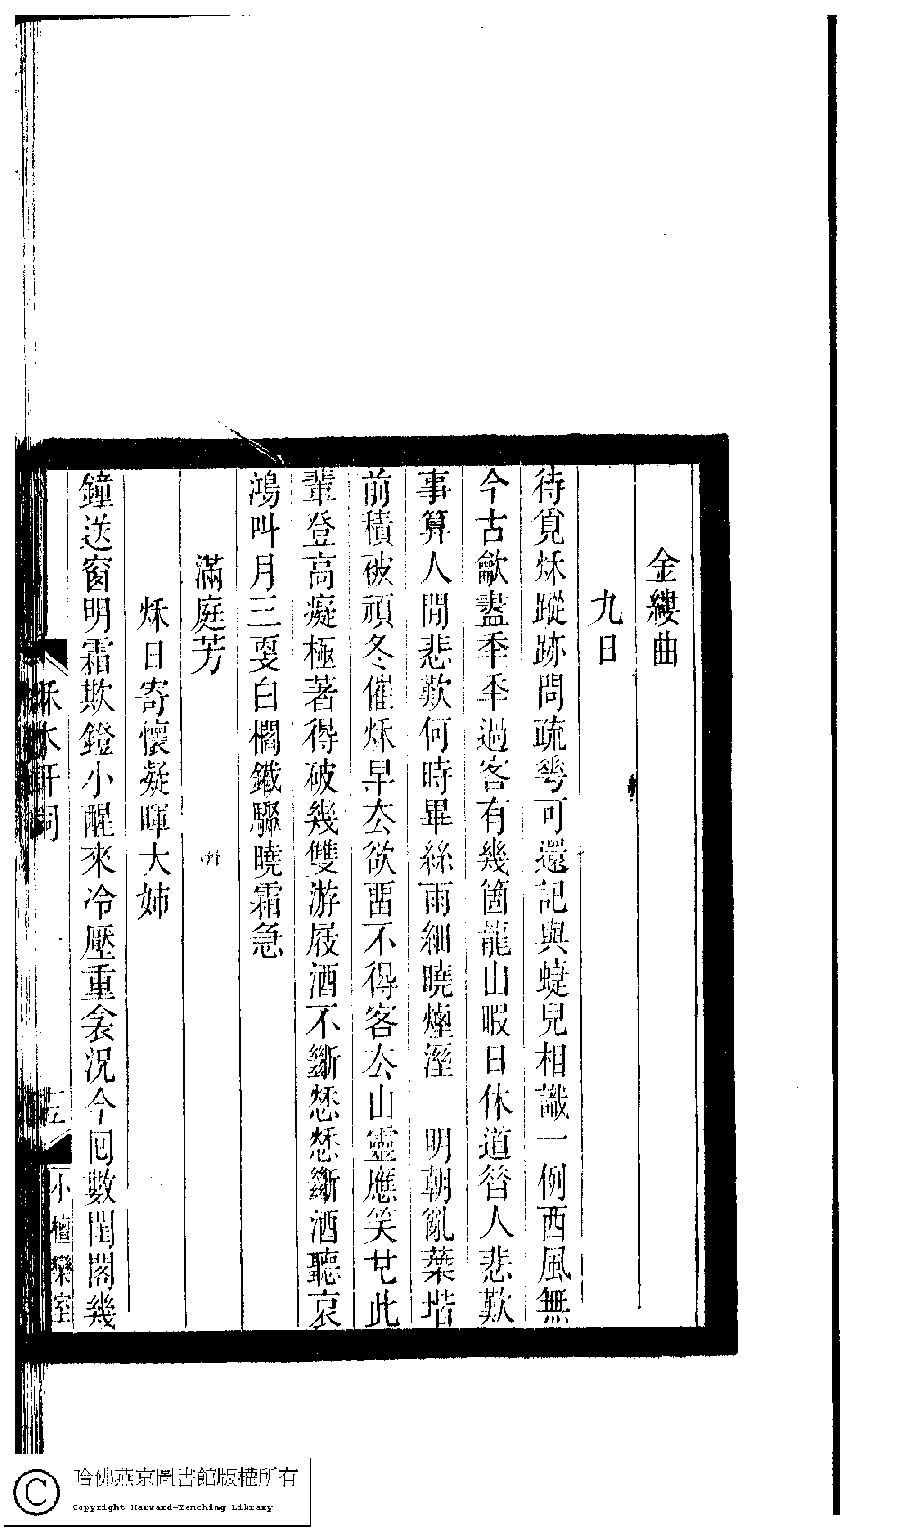 金縷曲
九日
待覓秌蹤跡問疏花可還記與蜨兒相識一例西風無
今古歙盡秊秊過客有幾箇龍山暇日休道替人悲歎
事算人閒悲歎何時畢絲雨細曉煙溼　明朝亂葉堦
前積破頑冬催秌早去欲畱不得客去山靈應笑也此
輩登高癡極著得破幾雙游屐酒不斷愁愁斷酒聽哀
鴻叫月三更白櫩鐵驟曉霜急
滿庭芳
秌日寄懷凝暉大姊
鐘送窗明霜欺鐙小醒來冷壓重衾況今囘數閨閣幾
秌水軒詞
五
小檀欒室
哈佛燕京圖書館版權所有
Copyright Harvard-Yenching Library